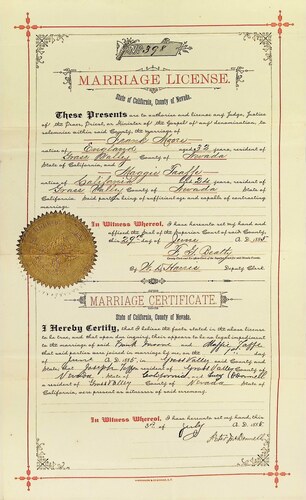 398
MARRIAGE LICENSE.
State of California, County of Nevada.
These Presents are to authorize and license any Judge, Justice
of the Peace, Priest, or Minister of the Gospel of any denomination, to
solemnize within said County, the marriage of
Frank Moore
native of England aged 32 years, resident of
Grass Valley County of Nevada
and Maggie Taffe
native of California aged 24 years, resident of
Grass Valley County of Nevada
State said parties being of sufficient age and capable of contracting
marriage.
In Witness Whereof, I have hereunto set my hand and
affixed the Seal of the Superior Court of said County,
this 29th day of June A.D. 188
F. G. Beatty
By Deputy Clerk
MARRIAGE CERTIFICATE.
State of California, County of Nevada.
I Hereby Certify, that I believe the facts stated in the above license
to be true, and that upon due inquiry, there appears to be no legal impediment
to the marriage of said Frank Moore and Maggie Taffe
that said parties were joined in marriage by me, on the day
of June A.D. 188 in Grass Valley County
and State; that Joseph Taffe a resident of Grass Valley County of
Nevada State of California and Lucy
a resident of Grass Valley County of Nevada State of
California, were present as witnesses of said ceremony.
In Witness Whereof, I have hereunto set my hand, this
3rd July A.D. 188